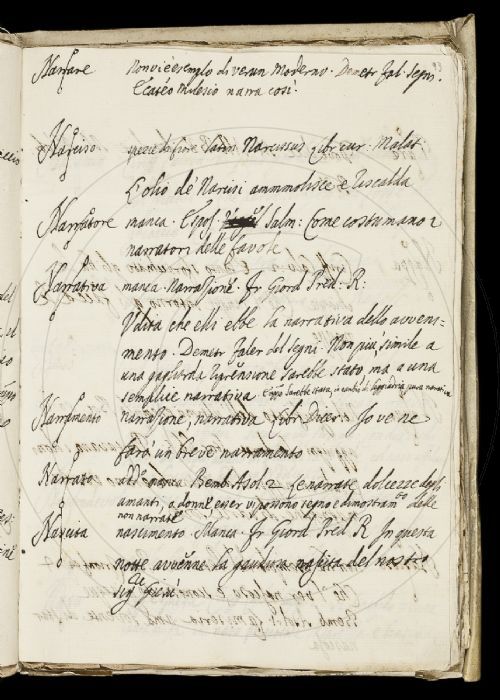 Narrare Non vi è esemplo di verun Moderno. Demetr Fal. Segni.
Ecateo Milesio narra così.
Narciso spezie di fiore latin. Narcissus. Libr cur. Malat:
L'olio de Narcisi ammmolisce e riscalda
Narratore manca. Espos. Salm: Come costumano i
narratori delle favole
Narrativa manca. Narrasione. Fr Giord Pred. R:
Udita che elli ebbe la narrativa dello avveni-
mento. Demetr Faler del Segni. Non piu simile a
una gagliarda riprensione sarebbe stato, ma a una
semplice narrativa
Narramento narrasione, narrativa Libr Dicer. Io ve ne
farò un breve narramento
Narrato add. manca Bemb. Asol 2 le narrate dolcezze degli
amanti, o donne, esser vi possono segno e dimostram.to delle
non narrate
Nascita nascimento. Manca. Fr Giord Pred R In questa
notte avvenne la gaudiosa nascita del nostro
Sig.re Giesù